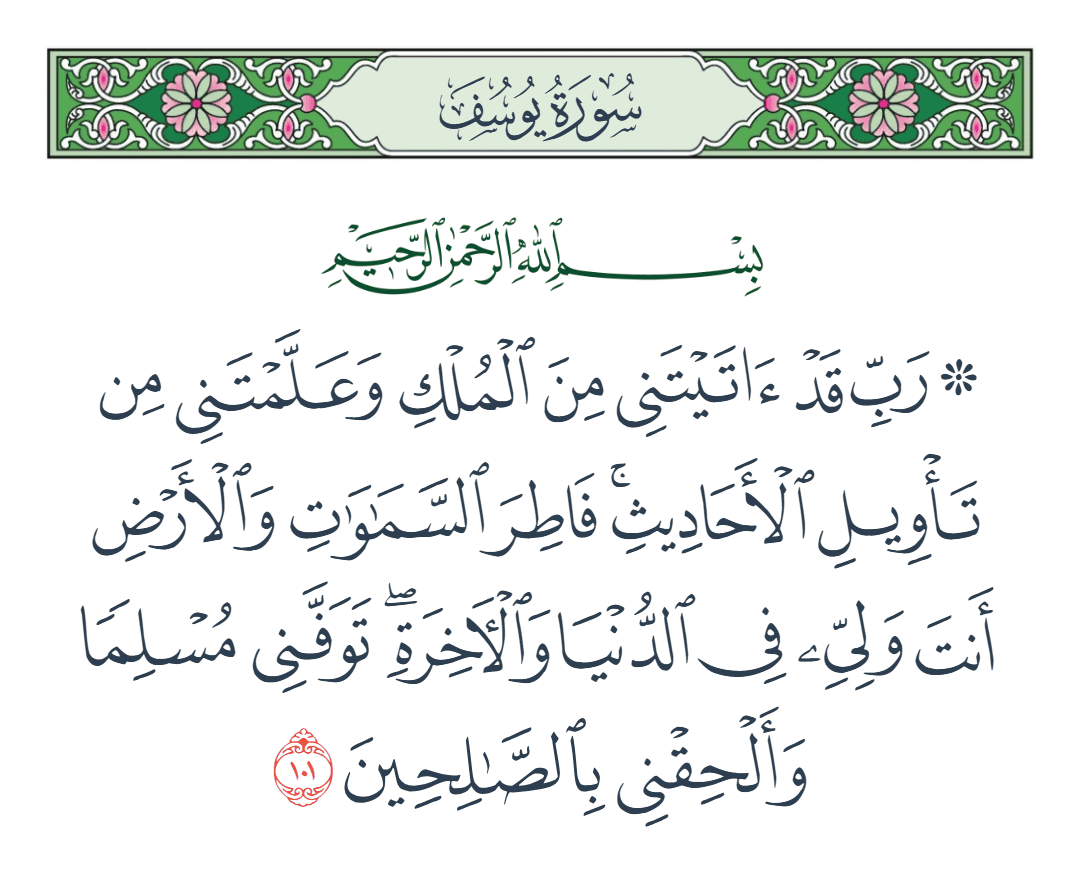 سُورَةُ يُوسُفَ
بِسْمِ ٱللَّهِ ٱلرَّحْمَٰنِ ٱلرَّحِيمِ
۞ رَبِّ قَدْ ءَاتَيْتَنِى مِنَ ٱلْمُلْكِ وَعَلَّمْتَنِى مِن
تَأْوِيلِ ٱلْأَحَادِيثِ ۚ فَاطِرَ ٱلسَّمَٰوَٰتِ وَٱلْأَرْضِ
أَنتَ وَلِىِّۦ فِى ٱلدُّنْيَا وَٱلْـَٔاخِرَةِ ۖ تَوَفَّنِى مُسْلِمًا
وَأَلْحِقْنِى بِٱلصَّٰلِحِينَ ١٠١